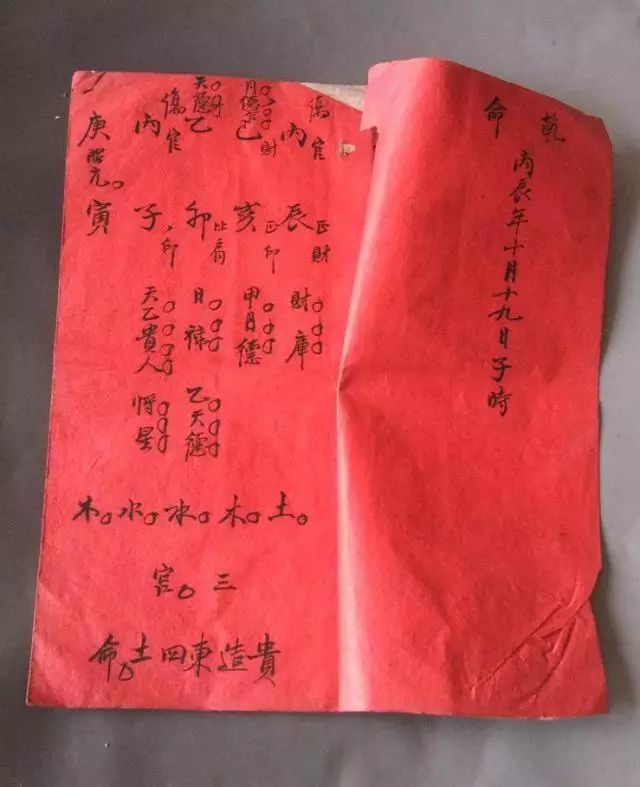 乾
命
丙辰年十月十九日子時
傷官
丙
辰
正財
財庫
月德合
財
己
亥
正印
甲月德
天德
乙
卯
比肩
日祿
乙天德
傷官
丙
子
印
天乙貴人
將星
庚
寅
土木水水木
三官
貴造東四土命